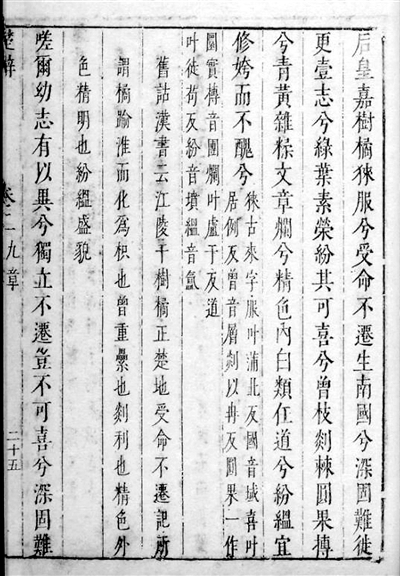 后皇嘉樹橘徠服兮受命不遷生南國兮深固難徙
更壹志兮綠葉素榮紛其可喜兮曾枝剡棘圓果摶
兮青黃雜糅文章爛兮精色內白類任道兮紛縕宜
修姱而不醜兮
徠古來字服叶蒲北反國音域喜叶
居例反曾音層剡以冉反圓果一作
圜實摶音團爛叶盧干反道
叶徒苟反紛音墳縕音氳
舊詁漢書云江陵千樹橘正楚地受命不遷記所
謂橘踰淮而化為枳也曾重纍也剡利也精色外
色精明也紛縕盛貌
嗟爾幼志有以異兮獨立不遷豈不可喜兮深固難
楚辭 卷二 九章 二十五